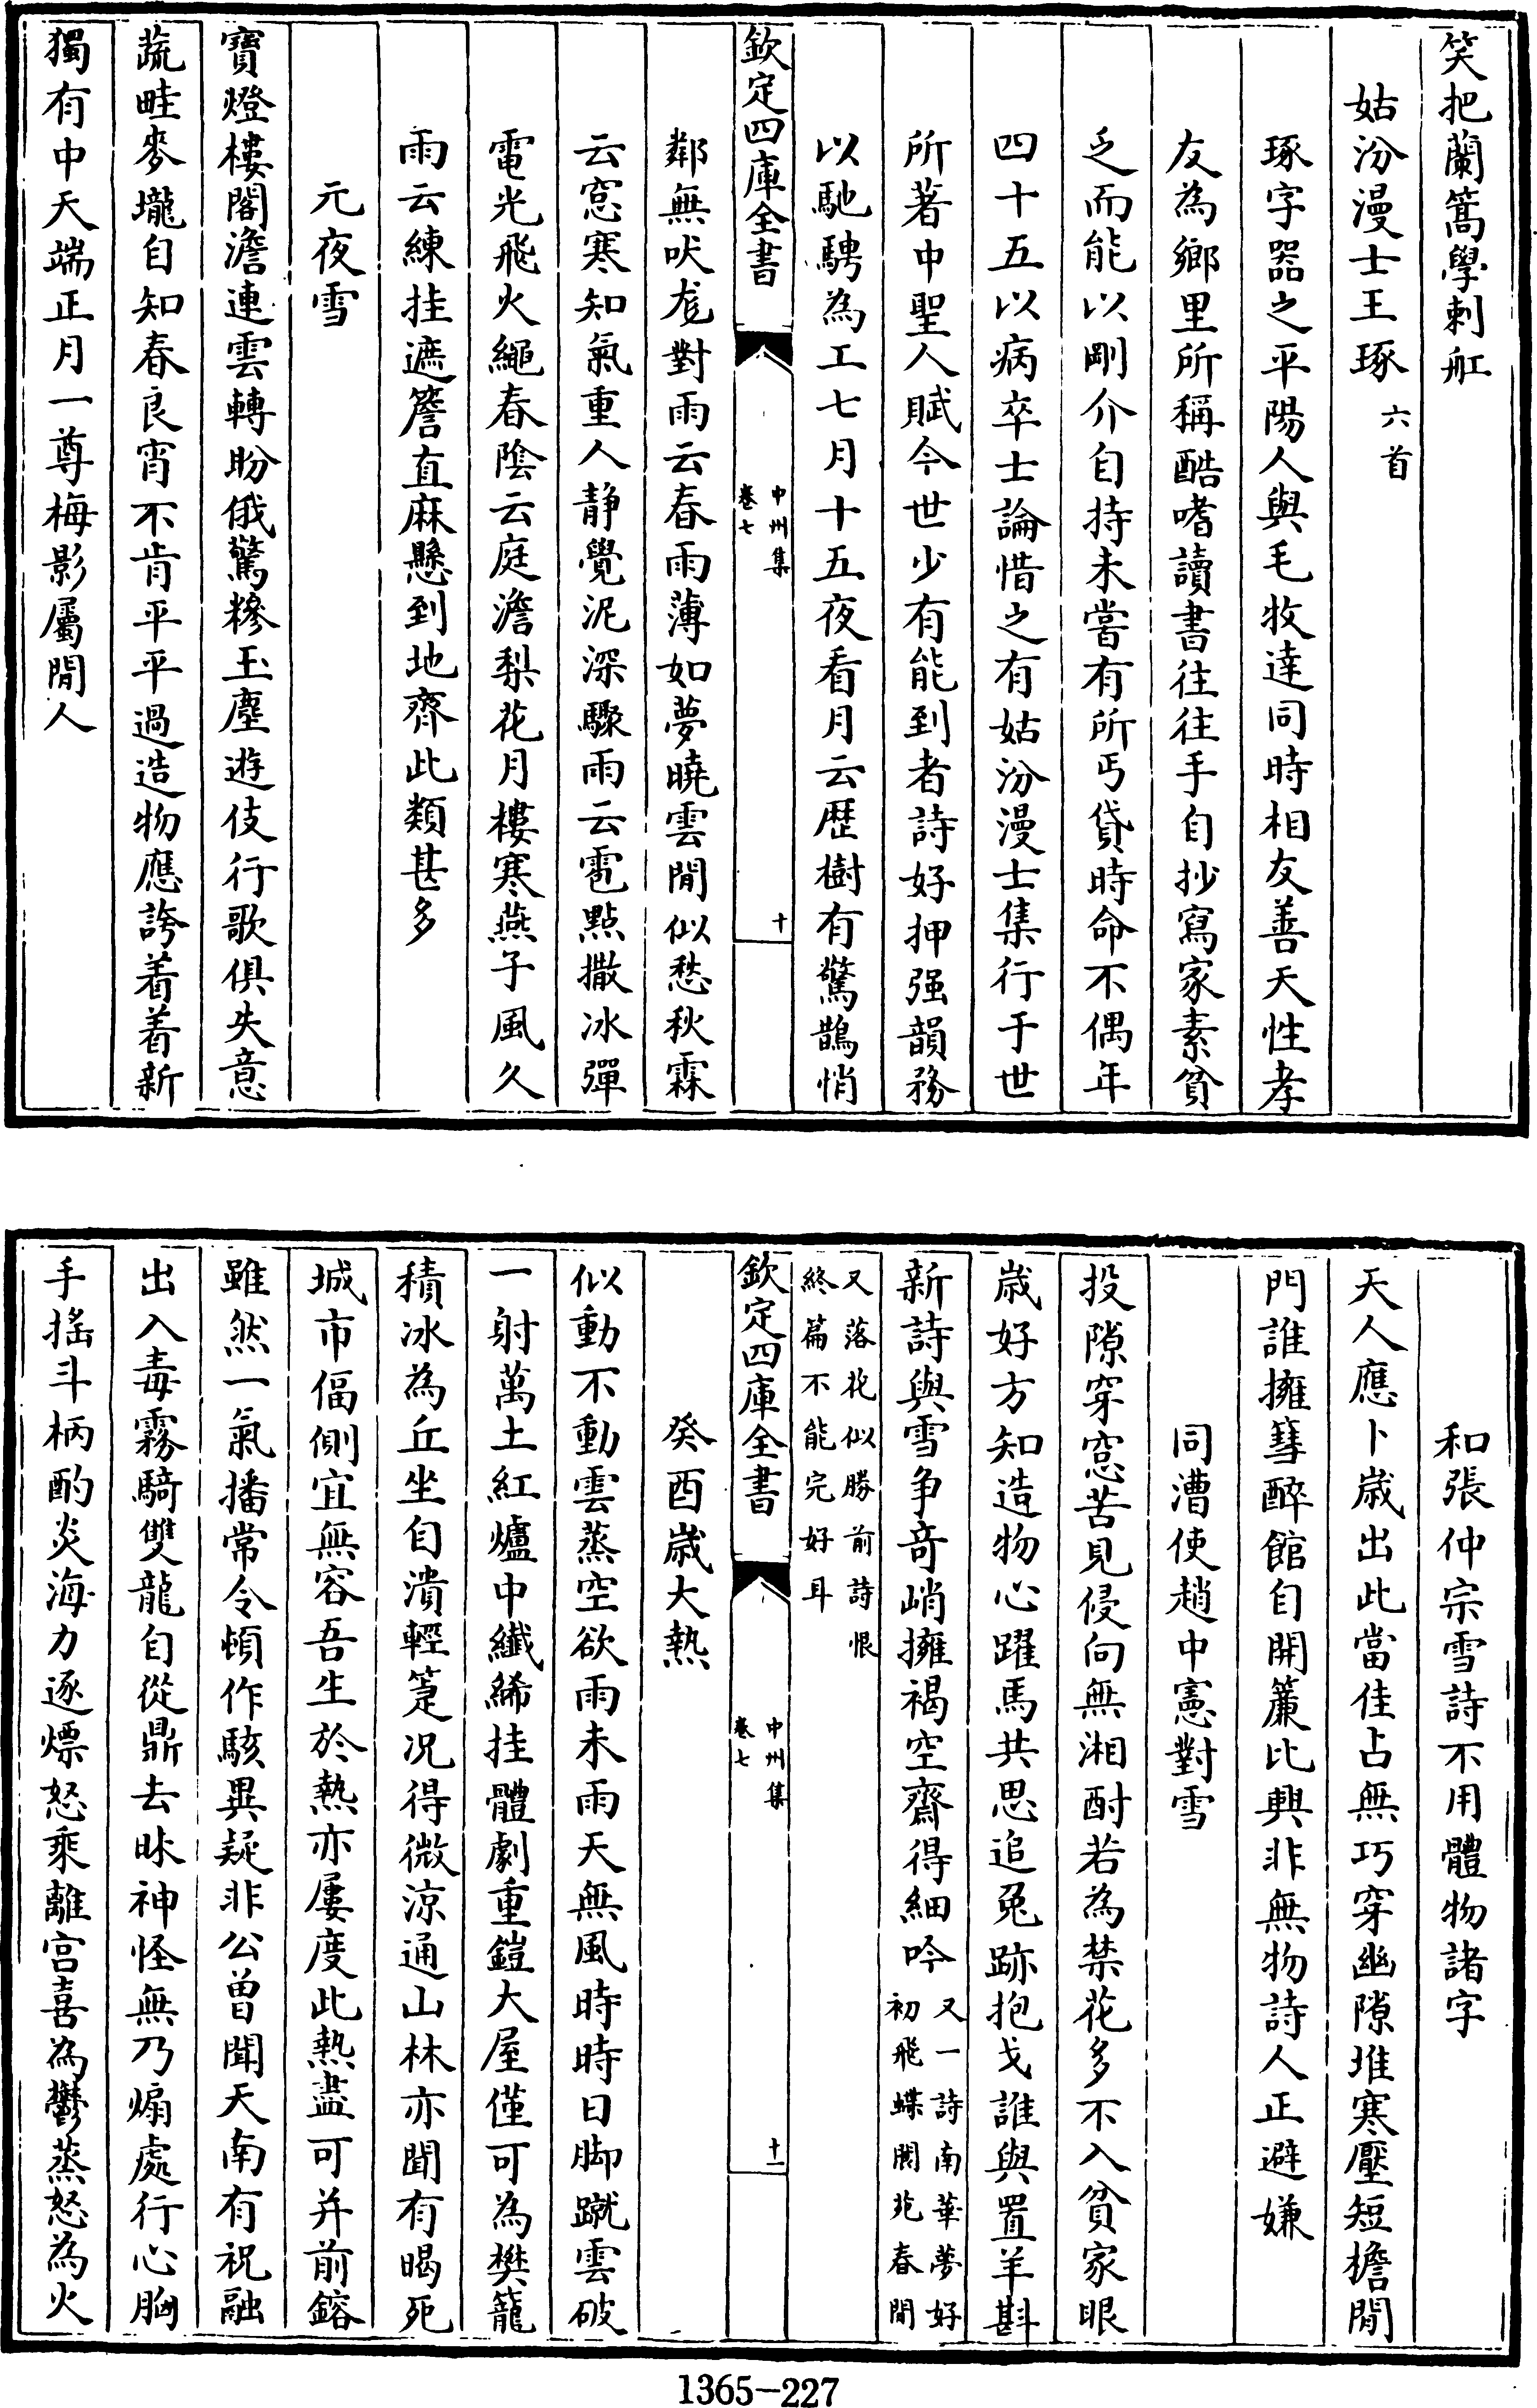 笑把蘭篙學刺舡
姑汾漫士王琢六首
琢字器之平陽人與毛牧達同時相友善天性孝
友為鄉里所稱酷嗜讀書往往手自抄寫家素貧
乏而能以剛介自持未嘗有所丐貸時命不偶年
四十五以病卒士論惜之有姑汾漫士集行于世
所著中聖人賦今世少有能到者詩好押强韻務
以馳騁為工七月十五夜看月云歴樹有驚鵲悄
欽定四庫全書
中州集
卷七
十
鄰無吠尨對雨云春雨薄如夢曉雲閒似愁秋霖
云窓寒知氣重人静覺泥深驟雨云雹點撒冰彈
電光飛火繩春陰云庭澹梨花月樓寒燕子風久
雨云練挂遮簷直麻懸到地齊此類甚多
元夜雪
寶燈樓閣澹連雲轉盼俄驚糝玉塵遊伎行歌俱失意
蔬畦麥壠自知春良宵不肯平平過造物應誇着着新
獨有中天端正月一尊梅影屬閒人
和張仲宗雪詩不用體物諸字
天人應卜歲出此當佳占無巧穿幽隙堆寒壓短檐閒
門誰擁篲醉館自開簾比興非無物詩人正避嫌
同漕使趙中憲對雪
投隙穿窓苦見侵向無湘酎若為禁花多不入貧家眼
歲好方知造物心躍馬共思追兎跡抱戈誰與置羊斟
新詩與雪争竒峭擁褐空齋得細吟又一詩南華夢好
初飛蝶閬苑春閒
又落花似勝前詩恨
終篇不能完好耳
欽定四庫全書
中州集
卷七
十一
癸酉歲大熱
似動不動雲蒸空欲雨未雨天無風時時日脚蹴雲破
一射萬土紅爐中纖絺挂體劇重鎧大屋僅可為樊籠
積冰為丘坐自潰輕箑况得微涼通山林亦聞有暍死
城市偪側宜無容吾生於熱亦屢度此熱盡可并前鎔
雖然一氣播常令頓作駭異疑非公曾聞天南有祝融
出入毒霧騎雙龍自從鼎去昧神怪無乃煽處行心胸
手搖斗柄酌炎海力逐熛怒乘離宫喜為鬱蒸怒為火
1365-227